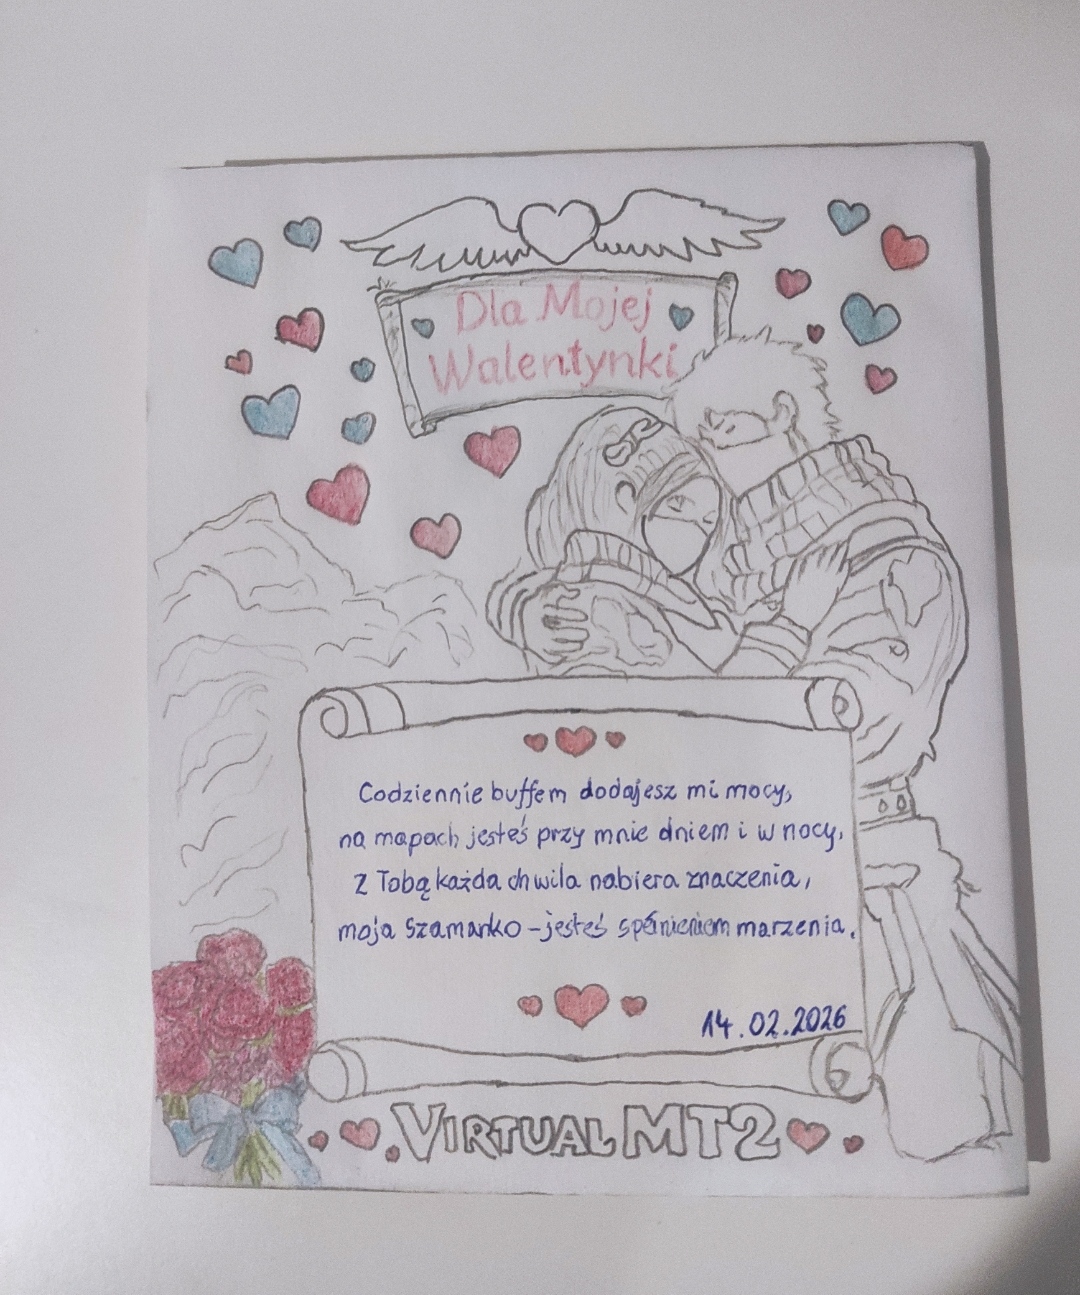 Dla Mojej
Walentynki
Codziennie buffem dodajesz mi mocy,
na mapach jesteś przy mnie dniem i w nocy,
Z Tobą każda chwila nabiera znaczenia,
moja Szamanko - jesteś spełnieniem marzenia.
14.02.2026
VIRTUAL MT2